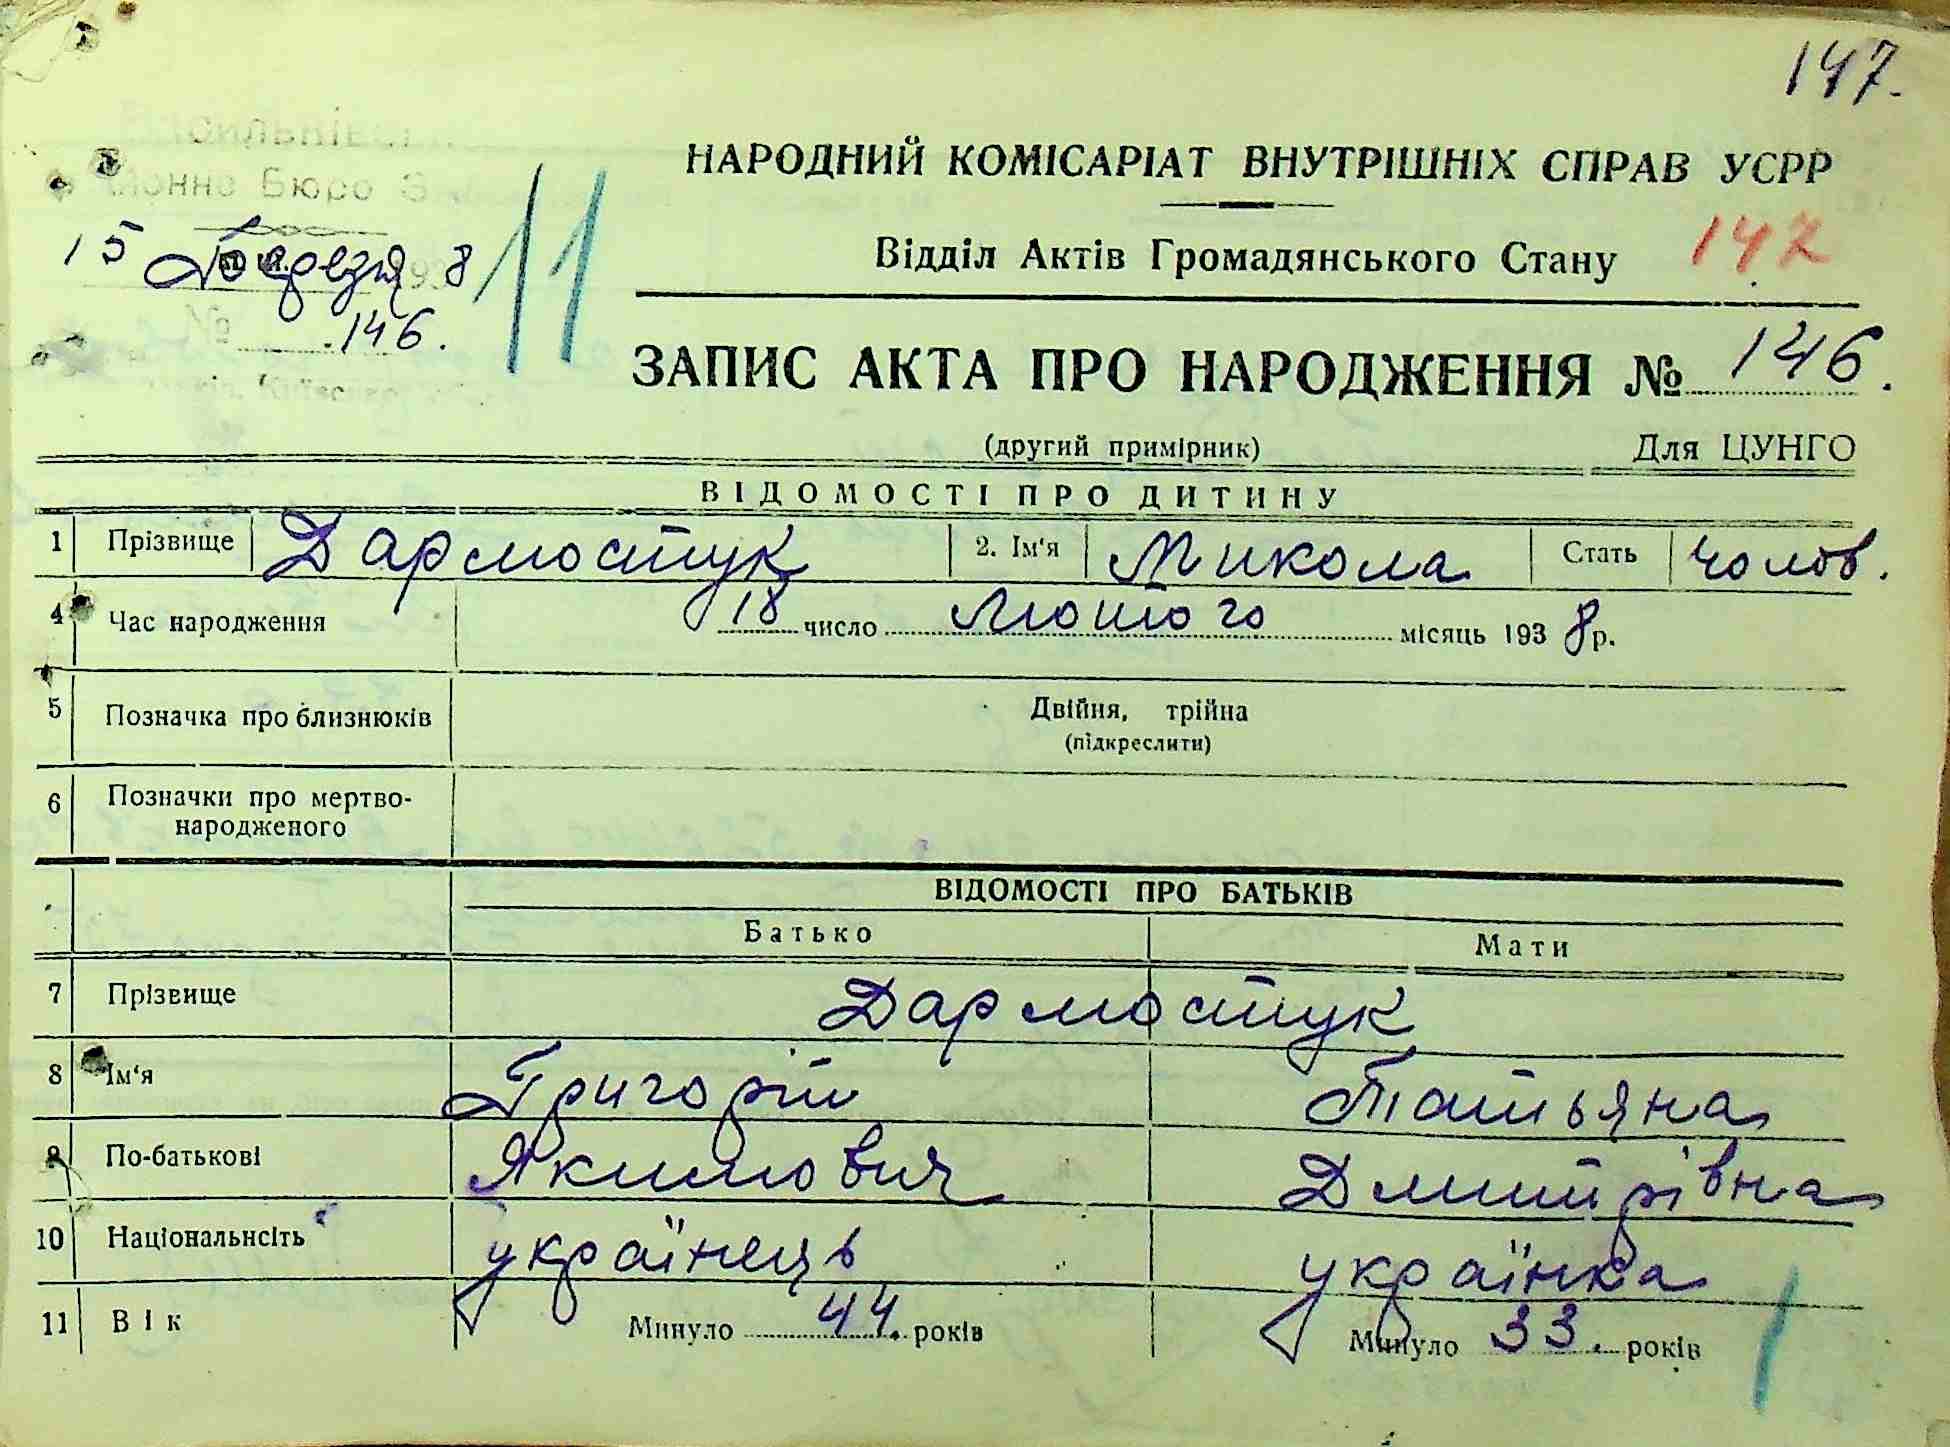 147.
НАРОДНИЙ КОМІСАРІАТ ВНУТРІШНІХ СПРАВ УСРР
Бюро
15 Березня 1938
№ 146.
11
Відділ Актів Громадянського Стану 147
ЗАПИС АКТА ПРО НАРОДЖЕННЯ № 146.
(другий примірник) Для ЦУНГО
ВІДОМОСТІ ПРО ДИТИНУ
1 Прізвище Дармостук 2. Ім'я Микола Стать чолов.
4 Час народження 18 число Лютого місяць 1938 р.
5 Позначка про близнюків Двійня, трійна
(підкреслити)
6 Позначки про мертво-
народженого
ВІДОМОСТІ ПРО БАТЬКІВ
Батько Мати
7 Прізвище Дармостук
8 Ім'я Григорій Татьяна
9 По-батькові Якимович Дмитрівна
10 Національнсіть українець українка
11 Вік Минуло 44. років Минуло 33. років